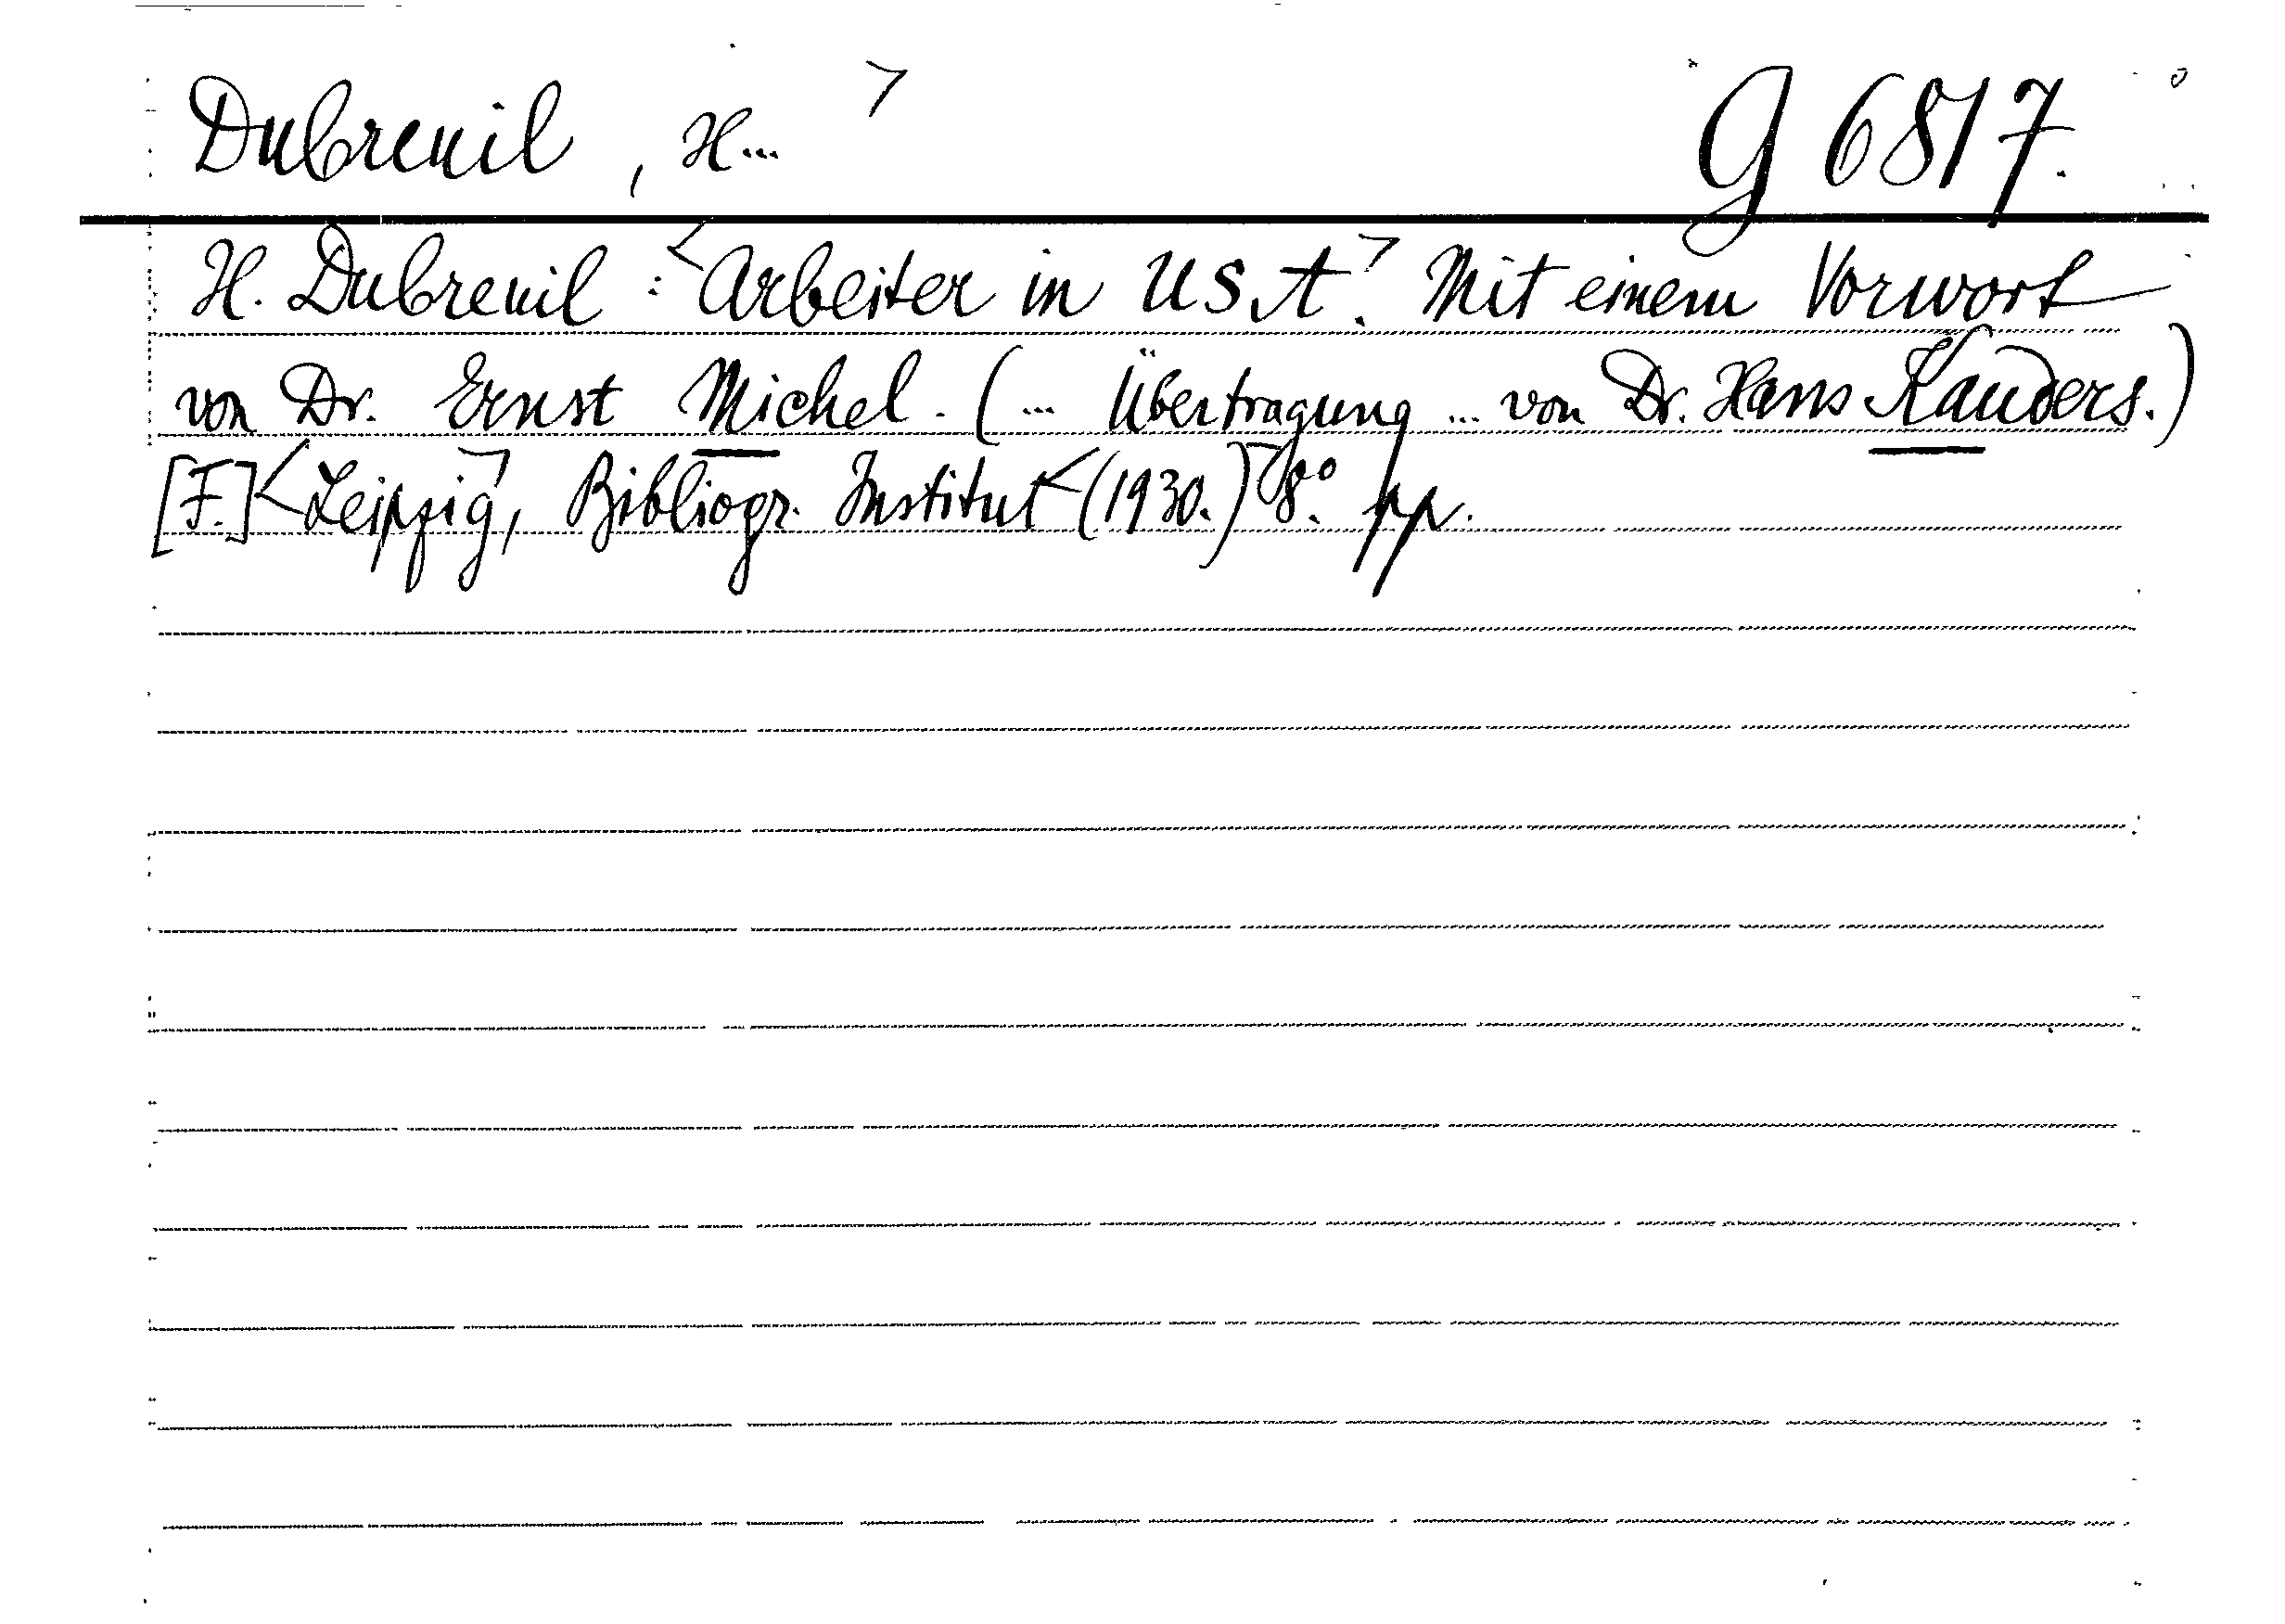 Dubreuil, H... ⌝ G 6817.
H. Dubreuil: <Arbeiter in USA.⌝ Mit einem Vorwort
von Dr. Ernst Michel. (... Übertragung ... von Dr. Hans Kauders.)
[F.] <Leipzig⌝, Bibliogr. Institut <(1930.)⌝ 8º. pp.